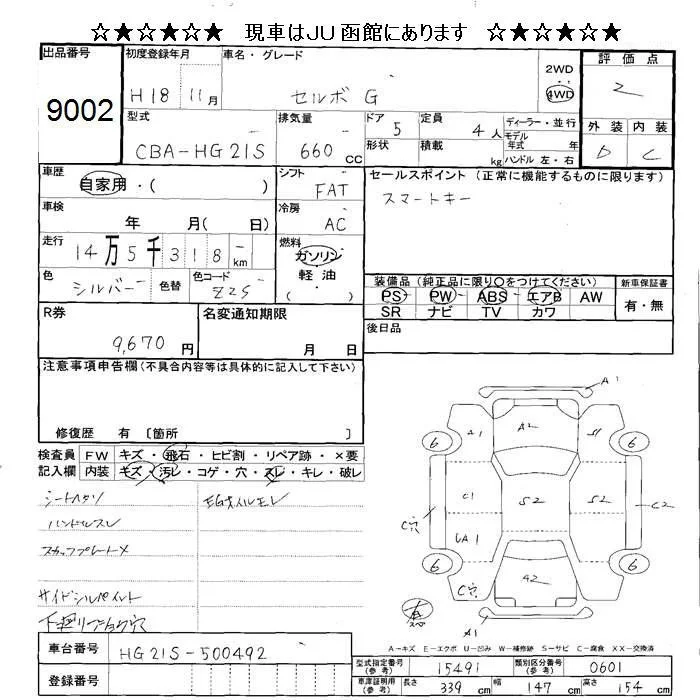 ☆★☆★☆★ 現車はJU函館にあります ☆★☆★☆★
出品番号 9002
初度登録年月 H18 11月
車名・グレード セルボ G
2WD
4WD
評価点 2
型式 CBA-HG21S
排気量 660 CC
ドア 5
形状
定員 4人
積載 kg
ディーラー・並行
モデル年式 年
ハンドル 左・右
外装 D
内装 C
車歴 自家用・( )
シフト FAT
セールスポイント (正常に機能するものに限ります)
スマートキー
車検 年 月( 日)
冷房 AC
走行 14万5千318 km
燃料 ガソリン
軽油
( )
色 シルバー
色替
色コード Z2S
装備品 (純正品に限り○をつけてください)
PS PW ABS エアB AW
SR ナビ TV カワ
新車保証書
有・無
R券 9,670円
名変通知期限 月 日
後日品
注意事項申告欄(不具合内容等は具体的に記入して下さい)
修復歴 有 〔箇所 〕
検査員記入欄
FW キズ・飛石・ヒビ割・リペア跡・×要
内装 キズ・汚レ・コゲ・穴・スレ・キレ・破レ
シートヘタリ
ハンドルスレ
スカッフプレートメ
サイドシルペイント
A1
A1 A2 S1
6 6
C1 S2 S2 C2
C穴
UA1
6 6
C穴 A2
A1
A-キズ E-エクボ U-凹み W-補修跡 S-サビ C-腐食 XX-交換済
車台番号 HG21S-500492
登録番号
型式指定番号(参考) 15491
類別区分番号(参考) 0601
車庫証明用(参考) 長さ 339 cm 幅 147 cm 高さ 154 cm